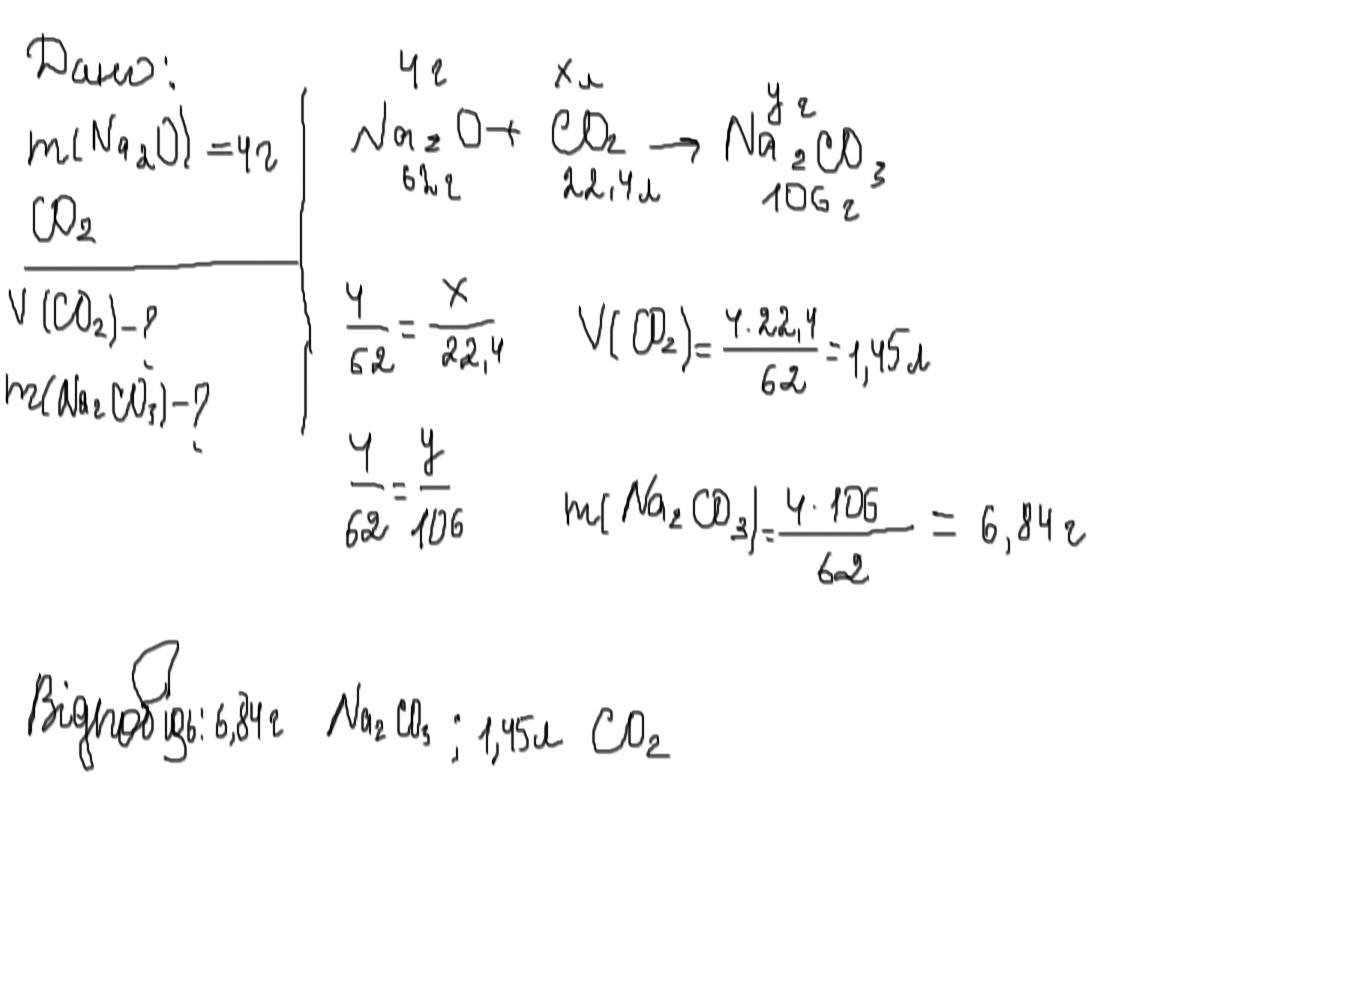 Дано:
m(Na₂O) = 4г
CO₂
V(CO₂) - ?
m(Na₂CO₃) - ?
4г xл yг
Na₂O + CO₂ → Na₂CO₃
62г 22,4л 106г
4/62 = x/22,4 V(CO₂) = 4·22,4/62 = 1,45л
4/62 = y/106 m(Na₂CO₃) = 4·106/62 = 6,84г
Відповідь: 6,84г Na₂CO₃; 1,45л CO₂